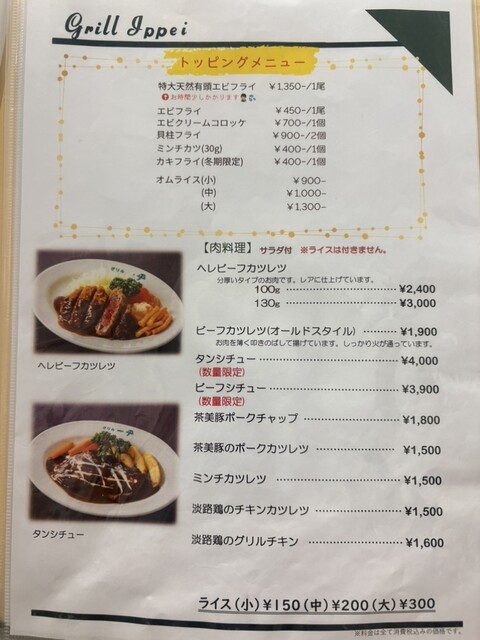 Grill Ippei
トッピングメニュー
特大天然有頭エビフライ ￥1,350-/1尾
お時間少しかかります
エビフライ ￥450-/1尾
エビクリームコロッケ ￥700-/1個
貝柱フライ ￥900-/2個
ミンチカツ(30g) ￥400-/1個
カキフライ(冬期限定) ￥400-/1個
オムライス(小) ￥900-
(中) ￥1,000-
(大) ￥1,300-
【肉料理】 サラダ付 ※ライスは付きません。
ヘレビーフカツレツ
分厚いタイプのお肉です。レアに仕上げています。
100g ¥2,400
130g ¥3,000
ビーフカツレツ(オールドスタイル) ¥1,900
お肉を薄く叩きのばして揚げています。しっかり火が通っています。
ヘレビーフカツレツ
タンシチュー ¥4,000
(数量限定)
ビーフシチュー ¥3,900
(数量限定)
茶美豚ポークチャップ ¥1,800
茶美豚のポークカツレツ ¥1,500
ミンチカツレツ ¥1,500
淡路鶏のチキンカツレツ ¥1,500
タンシチュー
淡路鶏のグリルチキン ¥1,600
ライス(小)¥150(中)¥200(大)¥300
※料金は全て消費税込みの価格です。